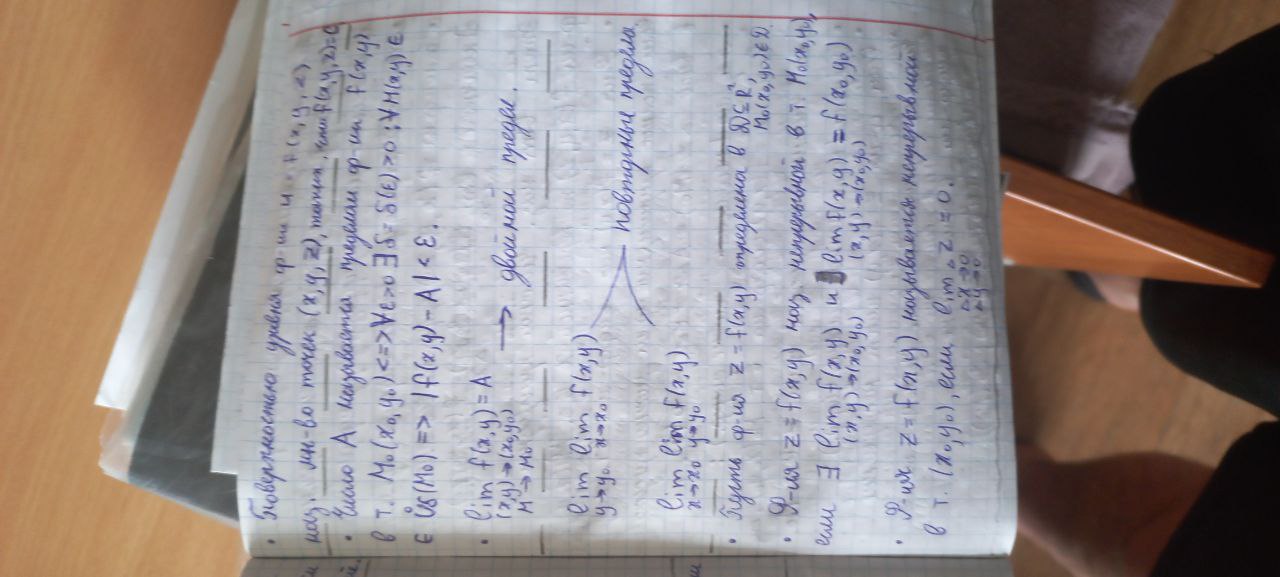 • Поверхностью уровня ф-ии u = f(x, y, z)
наз. мн-во точек (x, y, z), таких, что f(x, y, z) = C
• Число A называется пределом ф-ии f(x, y)
в т. M₀(x₀, y₀) <=> ∀ε>0 ∃ δ = δ(ε) > 0 : ∀M(x, y) ∈
∈ U̇δ(M₀) => |f(x, y) - A| < ε.
• lim f(x, y) = A → двойной предел.
(x,y)→(x₀,y₀)
M→M₀
lim lim f(x, y)
y→y₀ x→x₀
повторные пределы
lim lim f(x, y)
x→x₀ y→y₀
• Пусть ф-ия z = f(x, y) определена в D ⊆ R²,
M₀(x₀, y₀) ∈ D
• Ф-ия z = f(x, y) наз. непрерывной в т. M₀(x₀, y₀),
если ∃ lim f(x, y) и lim f(x, y) = f(x₀, y₀)
(x,y)→(x₀,y₀) (x,y)→(x₀,y₀)
• Ф-ия z = f(x, y) называется непрерывной
в т. (x₀, y₀), если lim Δz = 0.
Δx→0
Δy→0